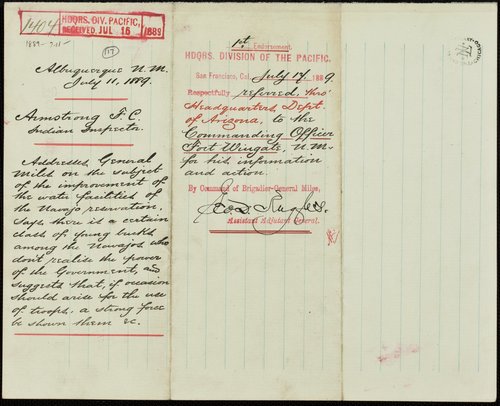 1404
HDQRS. DIV. PACIFIC,
RECEIVED JUL 16 1889
1889-211-
117
Albuquerque N.M.
July 11, 1889.
Armstrong F.C.
Indian Inspector.
Addresses General
Miles on the subject
of the improvement of
the water facilities of
the Navajo reservation.
Says there is a certain
class of young bucks
among the Navajos who
don't realize the power
of the Government, and
suggests that, if occasion
should arise for the use
of troops, a strong force
be shown them &c.
1st Endorsement.
HDQRS. DIVISION OF THE PACIFIC.
San Francisco, Cal. July 17, 1889.
Respectfully referred, thro'
Headquarters, Dept.
of Arizona, to the
Commanding Officer
Fort Wingate, N.M.
for his information
and action.
By Command of Brigadier-General Miles,
Assistant Adjutant General.